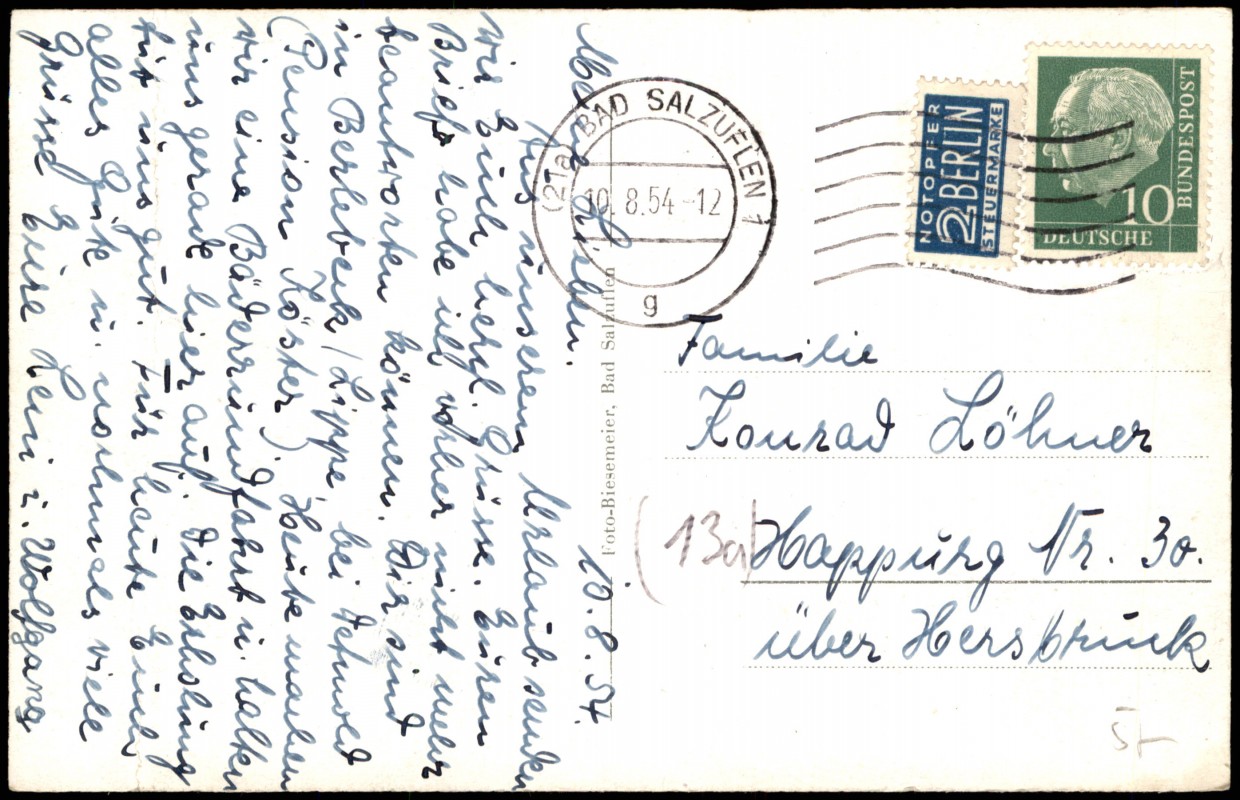 Meine Lieben. 10.8.54.
Aus unserem Urlaub senden
wir Euch herzl. Grüsse. Euren
Brief habe ich vorher nicht mehr
beantworten können. Wir sind
in Berlebeck/Lippe, bei Detmold
(Pension Köster) Heute machen
wir eine Bäderrundfahrt u. halten
uns gerade hier auf. Die Erholung
tut uns gut. Für heute Euch
alles Gute u. nochmals viele
Grüsse Eure Leni u. Wolfgang
Foto-Biesemeier, Bad Salzuflen
(21a) BAD SALZUFLEN 1
10.8.54-12
g
NOTOPFER
2 BERLIN
STEUERMARKE
10
DEUTSCHE
BUNDESPOST
Familie
Konrad Löhner
(13a) Happurg Nr. 30.
über Hersbruck